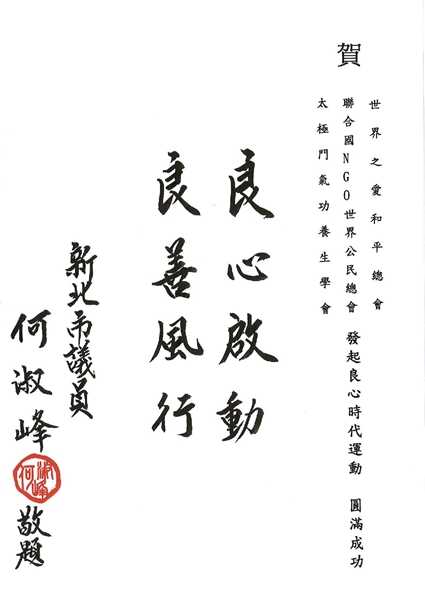 賀
世界之愛和平總會
聯合國NGO世界公民總會
太極門氣功養生學會
發起良心時代運動　圓滿成功
良心啟動
良善風行
新北市議員
何淑峰
何淑峰
敬題